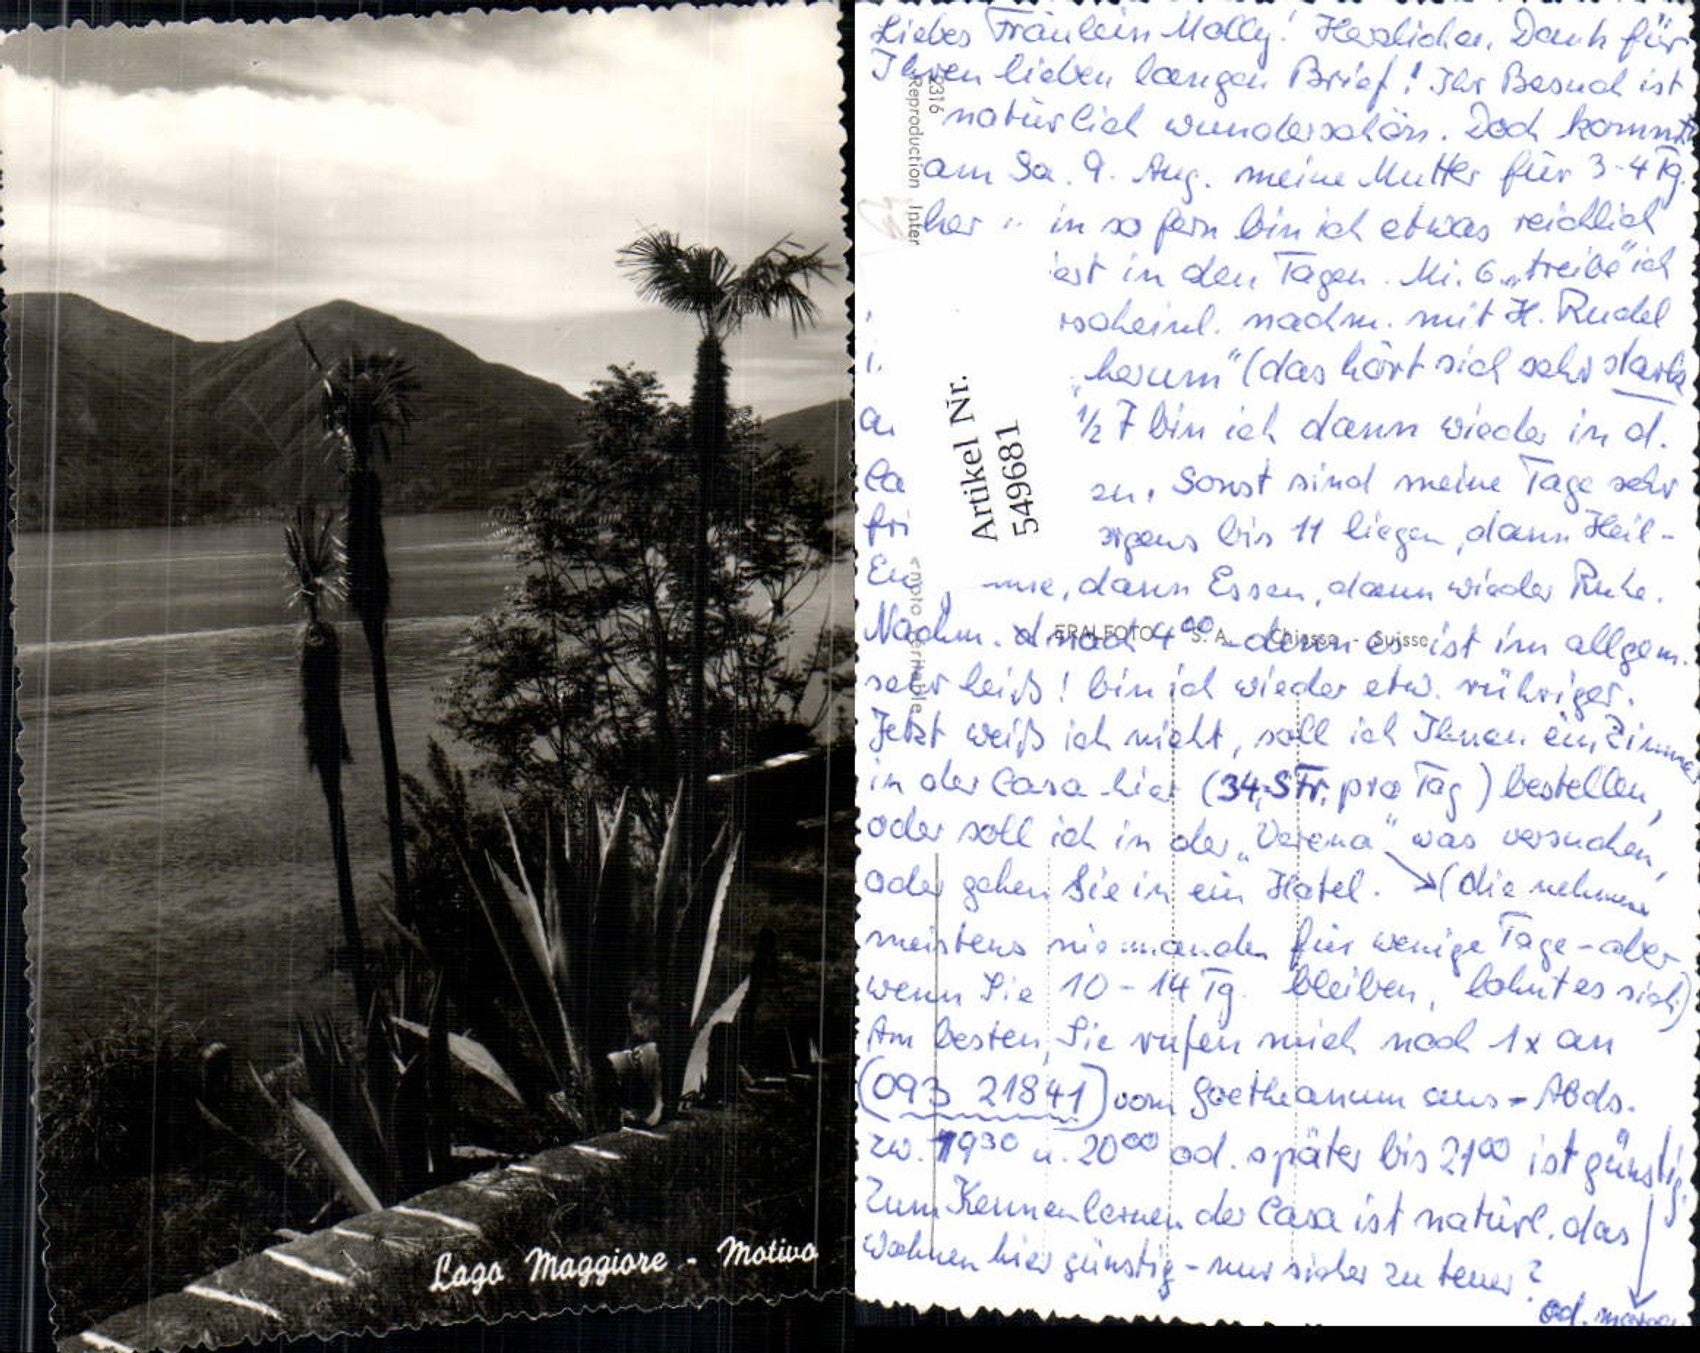 Lago Maggiore - Motivo
Liebes Fräulein Molly! Herzlichen Dank für
Ihren lieben langen Brief! Ihr Besuch ist
natürlich wunderschön. Doch kommt
am Sa. 9. Aug. meine Mutter für 3-4 Tg.
her in sofern bin ich etwas reichlich
in den Tagen. Mi. 6. „treibe" ich
rscheinl. nachm. mit H. Rudel
„herum" (das hört sich sehr stark
½ 7 bin ich dann wieder in d.
Ca en. Sonst sind meine Tage sehr
fri rgens bis 11 liegen, dann Heil-
Eu mie, dann Essen, dann wieder Ruhe.
Nachm. nach 4 00 - denn es ist im allgem.
sehr heiß! bin ich wieder etw. rühriger.
Jetzt weiß ich nicht, soll ich Ihnen ein Zimmer
in der Casa hier (34,- SFr. pro Tag) bestellen,
oder soll ich in der „Verena" was versuchen,
oder gehen Sie in ein Hotel. → (die nehmen
meistens niemanden für wenige Tage - aber
wenn Sie 10-14 Tg. bleiben, lohnt es sich)
Am besten, Sie rufen mich noch 1x an
(093 21841) vom Goetheanum aus - Abds.
zw. 19 30 u. 20 00 od. später bis 21 00 ist günstig.
Zum Kennenlernen der Casa ist natürl. das
Wohnen hier günstig - nur sicher zu teuer?
od.
Artikel Nr.
549681
Reproduction Inter
ERALFOTO S. A. Chiasso - Suisse